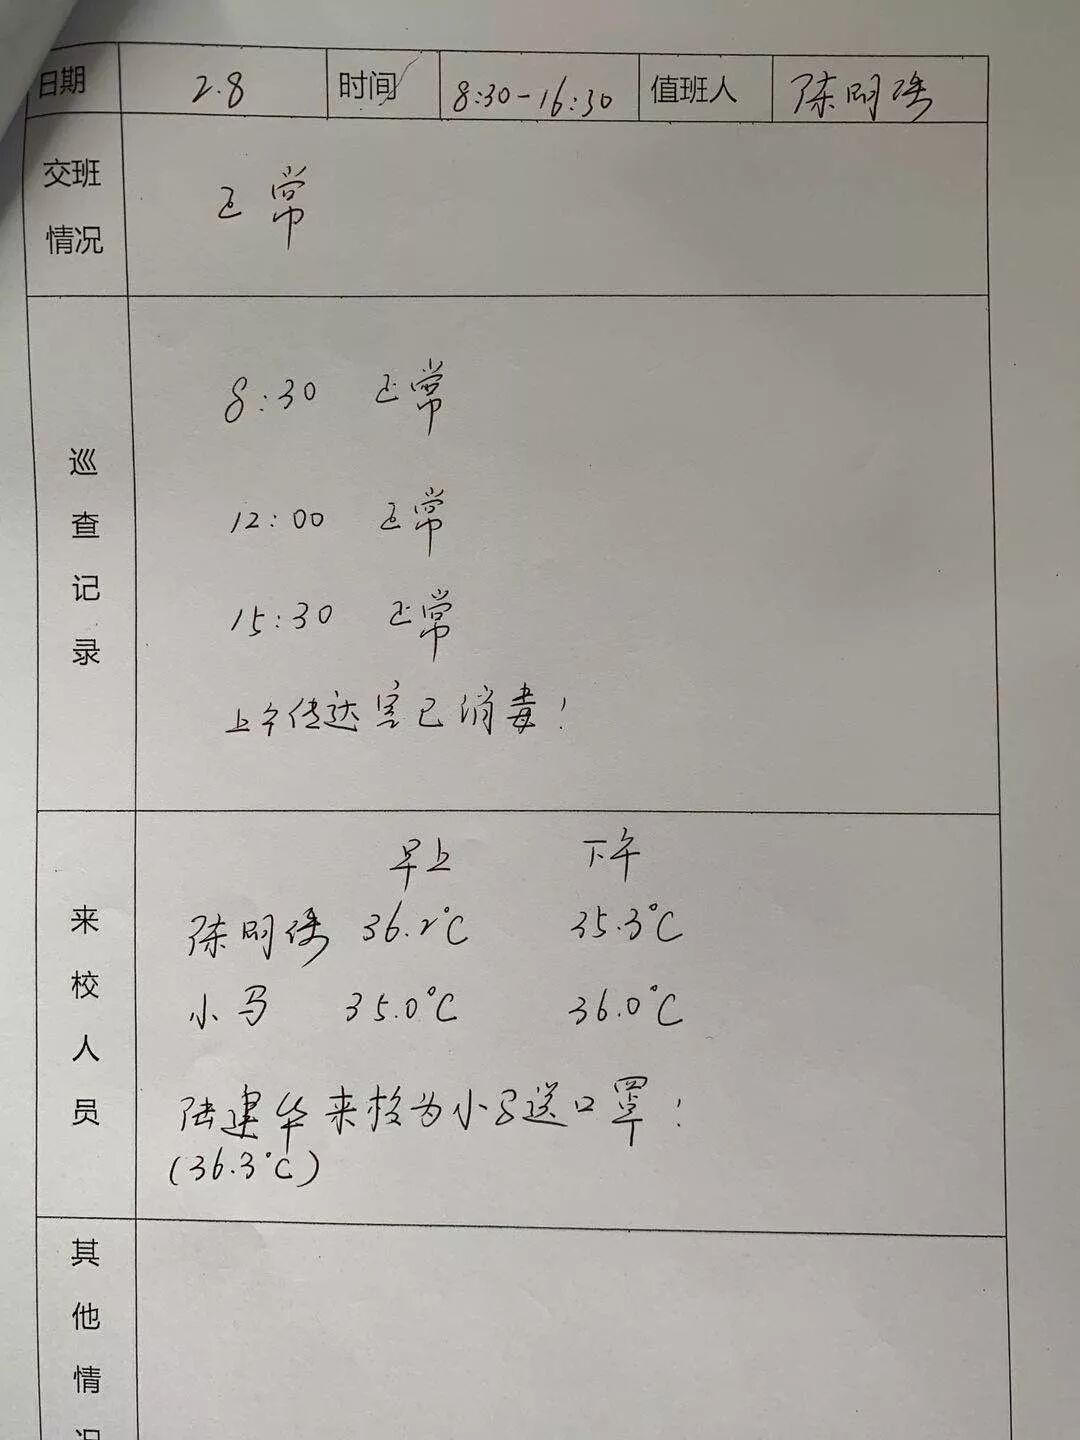 日期 2.8 时间 8:30-16:30 值班人 陈明
交班情况 正常
巡查记录
8:30 正常
12:00 正常
15:30 正常
上午传达室已消毒！
来校人员
早上 下午
陈明 36.2℃ 35.3℃
小马 35.0℃ 36.0℃
陆建华来校为小马送口罩！
(36.3℃)
其他情况